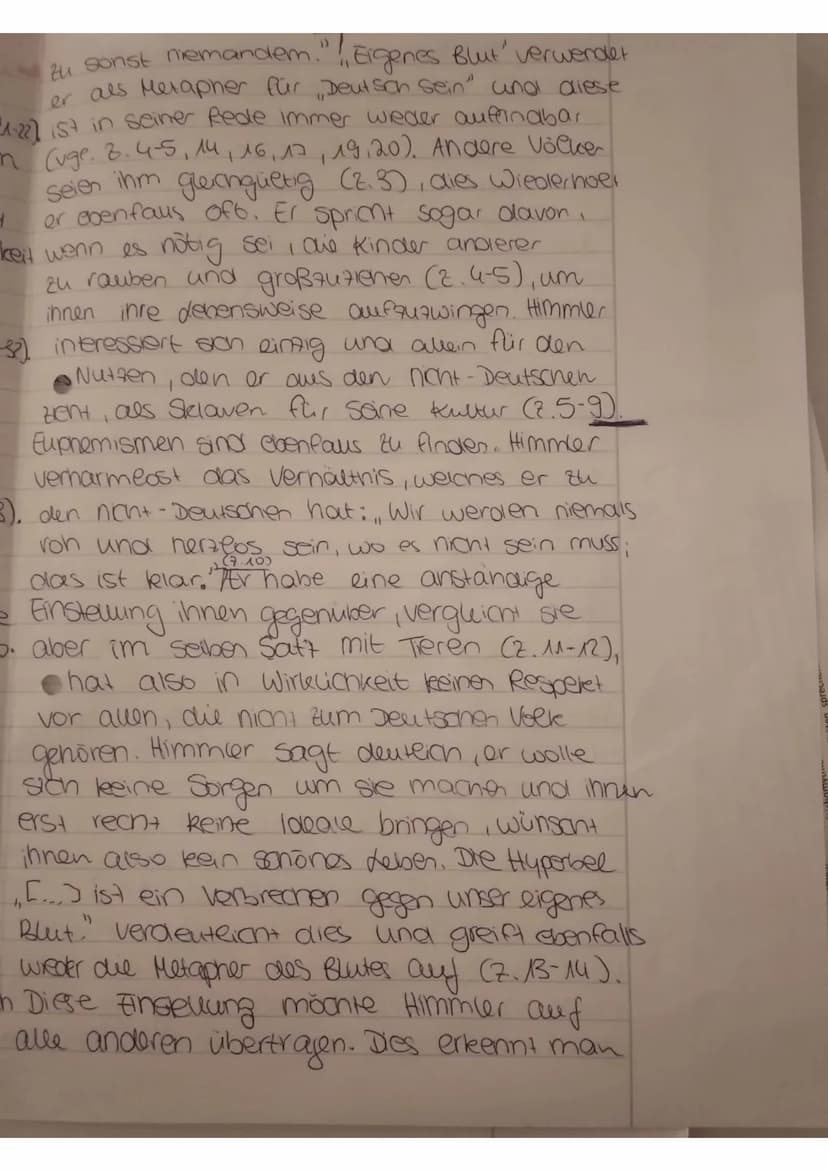 zu sonst niemandem." „Eigenes Blut' verwendet
er als Metapher für „Deutsch sein" und diese
1-22) ist in seiner Rede immer wieder auffindbar
n (vgl. Z. 4-5, 14, 16, 17, 19, 20). Andere Völker
seien ihm gleichgültig (Z.3), dies wiederholt
er ebenfalls oft. Er spricht sogar davon,
keit wenn es nötig sei, die Kinder anderer
zu rauben und großzuziehen (Z. 4-5), um
ihnen ihre Lebensweise aufzuzwingen. Himmler
32) interessiert sich einzig und allein für den
Nutzen, den er aus den nicht-Deutschen
zieht, als Sklaven für seine Kultur (Z.5-9).
Euphemismen sind ebenfalls zu finden. Himmler
verharmlost das Verhältnis, welches er zu
3). den nicht-Deutschen hat: „Wir werden niemals
roh und herzlos sein, wo es nicht sein muss;
das ist klar." (Z.10) Er habe eine anständige
e Einstellung ihnen gegenüber, vergleicht sie
o. aber im selben Satz mit Tieren (Z.11-12),
hat also in Wirklichkeit keinen Respekt
vor allen, die nicht zum Deutschen Volk
gehören. Himmler sagt deutlich, er wolle
sich keine Sorgen um sie machen und ihnen
erst recht keine Ideale bringen, wünscht
ihnen also kein schönes Leben. Die Hyperbel
„[...] ist ein Verbrechen gegen unser eigenes
Blut." verdeutlicht dies und greift ebenfalls
wieder die Metapher des Blutes auf (Z.13-14).
n Diese Einstellung möchte Himmler auf
alle anderen übertragen. Dies erkennt man